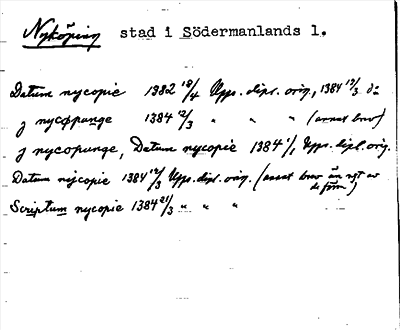 Nyköping stad i Södermanlands l.
Datum nycopie 1382 18/4 Upps. dipl. orig., 1384 12/3 d:o
j nycøpunge 1384 12/3 " " " (annat brev)
j nycopunge, Datum nycopie 1384 1/1 Upps. dipl. orig.
Datum nycopie 1384 12/3 Upps. dipl. orig. (annat brev än ngt av
de förra)
Scriptum nycopie 1384 21/3 " " "